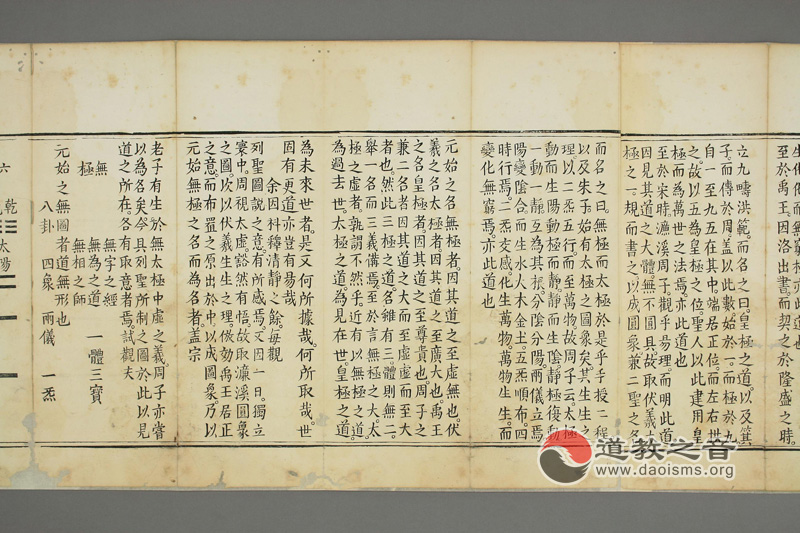 生化而無窮極
至於禹王因洛出書而契之於隆盛之時。
立九疇洪範。而名之曰。皇極之道。以及箕
子。而傳於周。蓋以此數。始於一。而極於九。
自一至九。五在其中。端居正位。而左右拱
之。故以五為皇極之位。聖人以此建用皇
極。而為萬世之法焉。亦此道也。
至於宋時。濂溪周子。觀乎易理。而明此道。
因見其道之大體。無不圓具。故取伏羲太
極之一規。而書之。以成圓象。兼二聖之名。
而名之曰。無極而太極。於是乎手授二程
以及朱子。始有太極之圖象矣。其生生之
理。以二炁五行。而至萬物。故周子云。太極
動而生陽。動極而靜。靜而生陰。靜極復動。
一動一靜。互為其根。分陰分陽。兩儀立焉。
陽變陰合。而生水火木金土。五炁順布。四
時行焉。二炁交感。化生萬物。萬物生生。而
變化無窮焉。亦此道也。
元始之名無極者。因其道之至虛無也。伏
羲之名太極者。因其道之至廣大也。禹王
之名皇極者。因其道之至尊貴也。周子之
兼二名者。因其道之大而至虛。虛而至大
者也。然此三極之道。名雖有三。體則無二。
舉一名而三義備焉。至於言無極之大。太
極之虛者。孰謂不然乎。近有以無極之道。
為過去世。太極之道。為見在世。皇極之道。
為未來世者。是又何所據哉。何所取哉。世
固有更。道亦豈有易哉。
余因科釋清靜之餘。每觀
列聖圖說之意。有所感焉。又因一日。獨立
寰中。周視太虛。豁然有悟。故取濂溪圓象
之圖。次以伏羲生生之理。倣効禹王居正
之意。而布置之。原出於中。以成圖象。乃以
元始無極之名。而為名者。蓋宗
老子有生於無。太極中虛之義。周子亦嘗
以為名矣。今具列聖所制之圖於此。以見
道之所在。各有取意者焉。試觀夫
無極
無字之經
無為之道
無相之師
一體三寶
元始之無圖者道無形也
八卦 四象 兩儀 一炁
六 乾
太陽
道教之音
www.daoisms.org